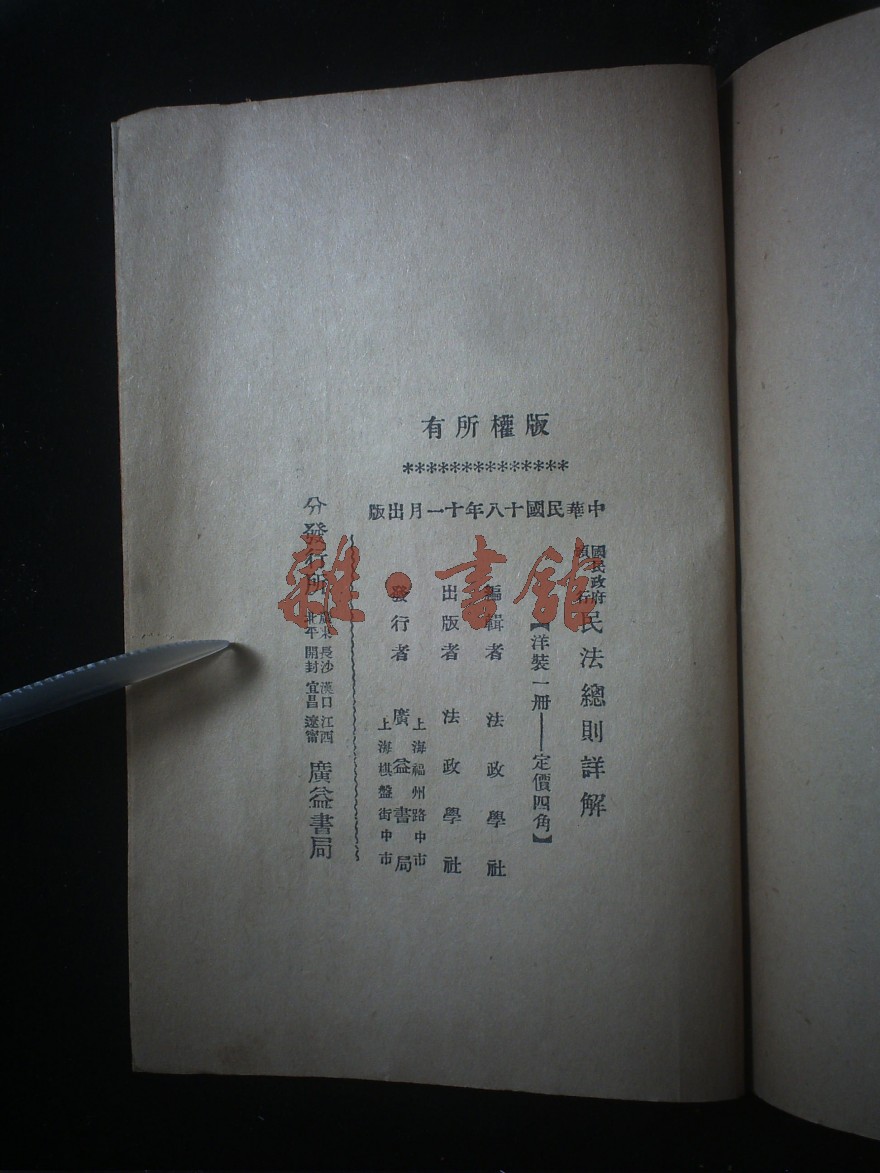 版權所有
***************
中華民國十八年十一月出版
國民政府
頒行
民法總則詳解
【洋裝一冊——定價四角】
編輯者 法政學社
出版者 法政學社
發行者 廣益書局
上海福州路中市
上海棋盤街中市
分發行所
廣東 長沙 漢口 江西
北平 開封 宜昌 遼甯
廣益書局
雜·書館